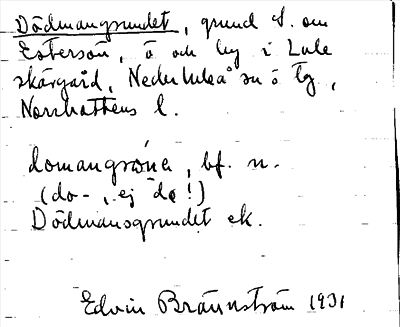 Dödmangrundet, grund S. om
Estersön, ö och by i Lule
skärgård, Nederluleå sn o tg,
Norrbottens l.
domangrōna, bf. n.
(do-, ej dø!)
Dödmansgrundet ek.
Edvin Brännström 1931